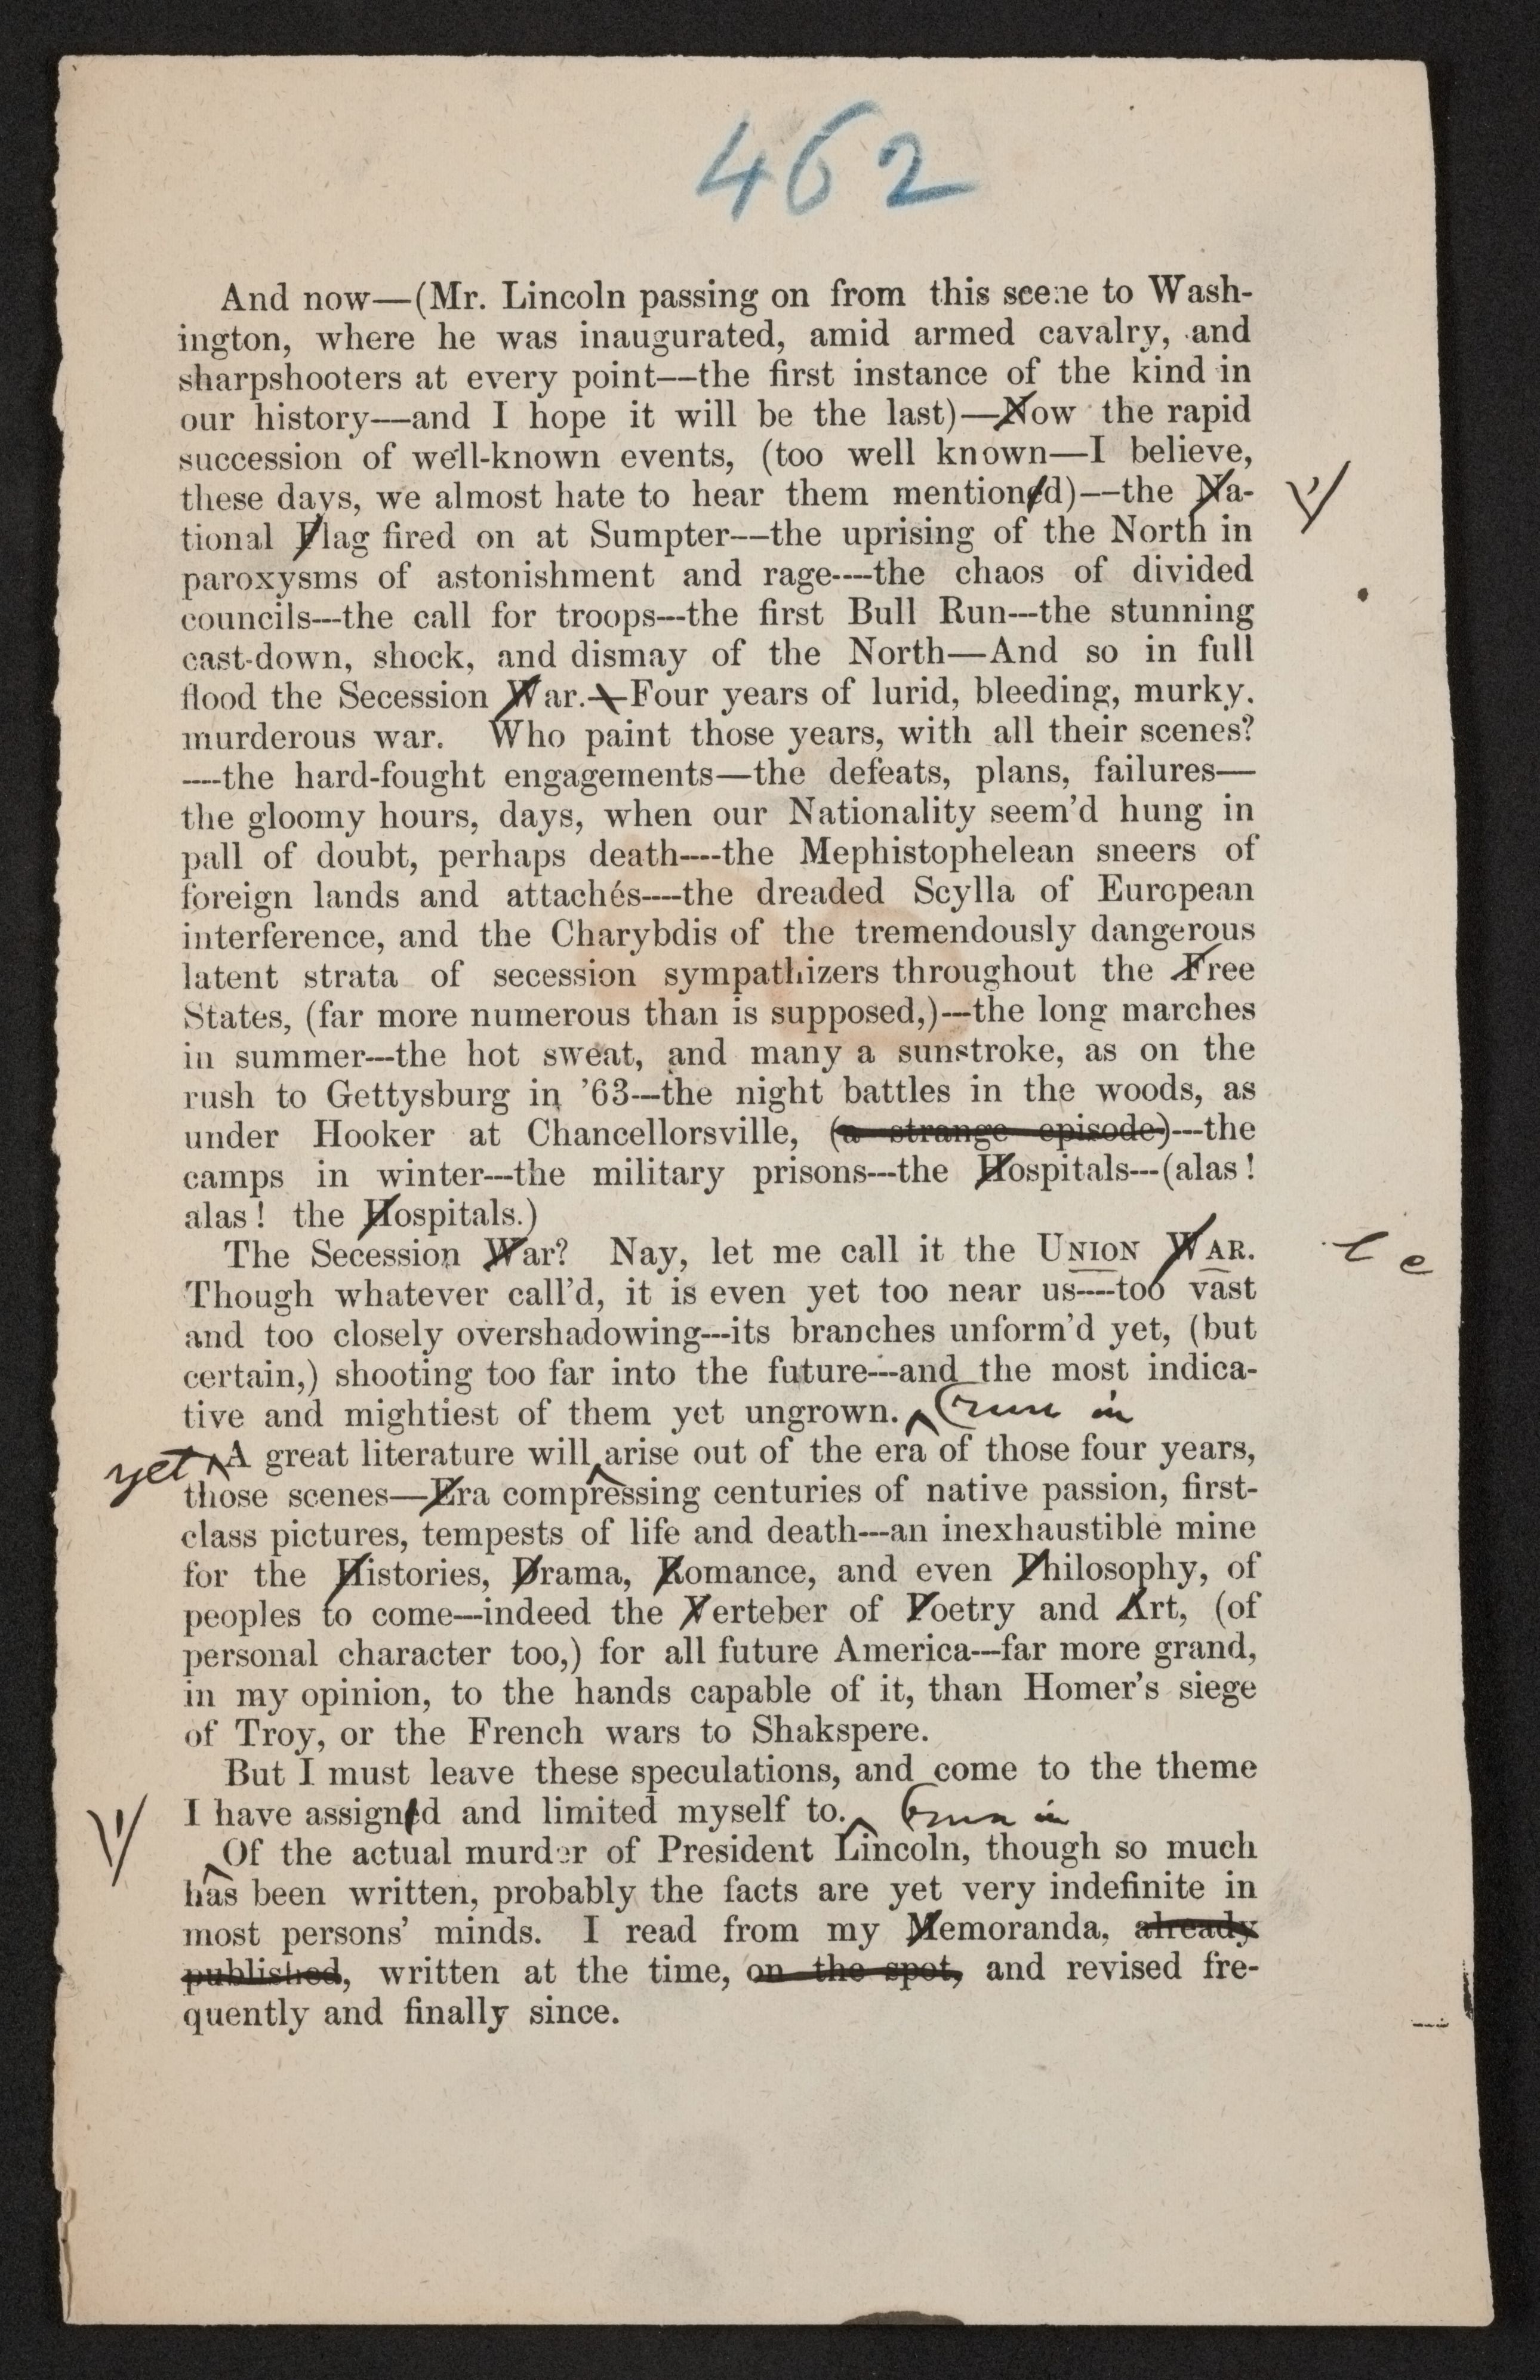 462
And now—(Mr. Lincoln passing on from this scene to Wash-
ington, where he was inaugurated, amid armed cavalry, and
sharpshooters at every point—the first instance of the kind in
our history—and I hope it will be the last)—Now the rapid
succession of well-known events, (too well known—I believe,
these days, we almost hate to hear them mentioned)—the Na-
tional Flag fired on at Sumpter—the uprising of the North in
paroxysms of astonishment and rage—the chaos of divided
councils—the call for troops—the first Bull Run—the stunning
cast-down, shock, and dismay of the North—And so in full
flood the Secession War.—Four years of lurid, bleeding, murky.
murderous war. Who paint those years, with all their scenes?
—the hard-fought engagements—the defeats, plans, failures—
the gloomy hours, days, when our Nationality seem'd hung in
pall of doubt, perhaps death—the Mephistophelean sneers of
foreign lands and attachés—the dreaded Scylla of European
interference, and the Charybdis of the tremendously dangerous
latent strata of secession sympathizers throughout the Free
States, (far more numerous than is supposed,)—the long marches
in summer—the hot sweat, and many a sunstroke, as on the
rush to Gettysburg in '63—the night battles in the woods, as
under Hooker at Chancellorsville, (a strange episode)—the
camps in winter—the military prisons—the Hospitals—(alas!
alas! the Hospitals.)
The Secession War? Nay, let me call it the UNION WAR. l c
Though whatever call'd, it is even yet too near us—too vast
and too closely overshadowing—its branches unform'd yet, (but
certain,) shooting too far into the future—and the most indica-
tive and mightiest of them yet ungrown. (run in
yet A great literature will arise out of the era of those four years,
those scenes—Era compressing centuries of native passion, first-
class pictures, tempests of life and death—an inexhaustible mine
for the Histories, Drama, Romance, and even Philosophy, of
peoples to come—indeed the Verteber of Poetry and Art, (of
personal character too,) for all future America—far more grand,
in my opinion, to the hands capable of it, than Homer's siege
of Troy, or the French wars to Shakspere.
But I must leave these speculations, and come to the theme
I have assigned and limited myself to. (run in
Of the actual murder of President Lincoln, though so much
has been written, probably the facts are yet very indefinite in
most persons' minds. I read from my Memoranda, already
published, written at the time, on the spot, and revised fre-
quently and finally since.